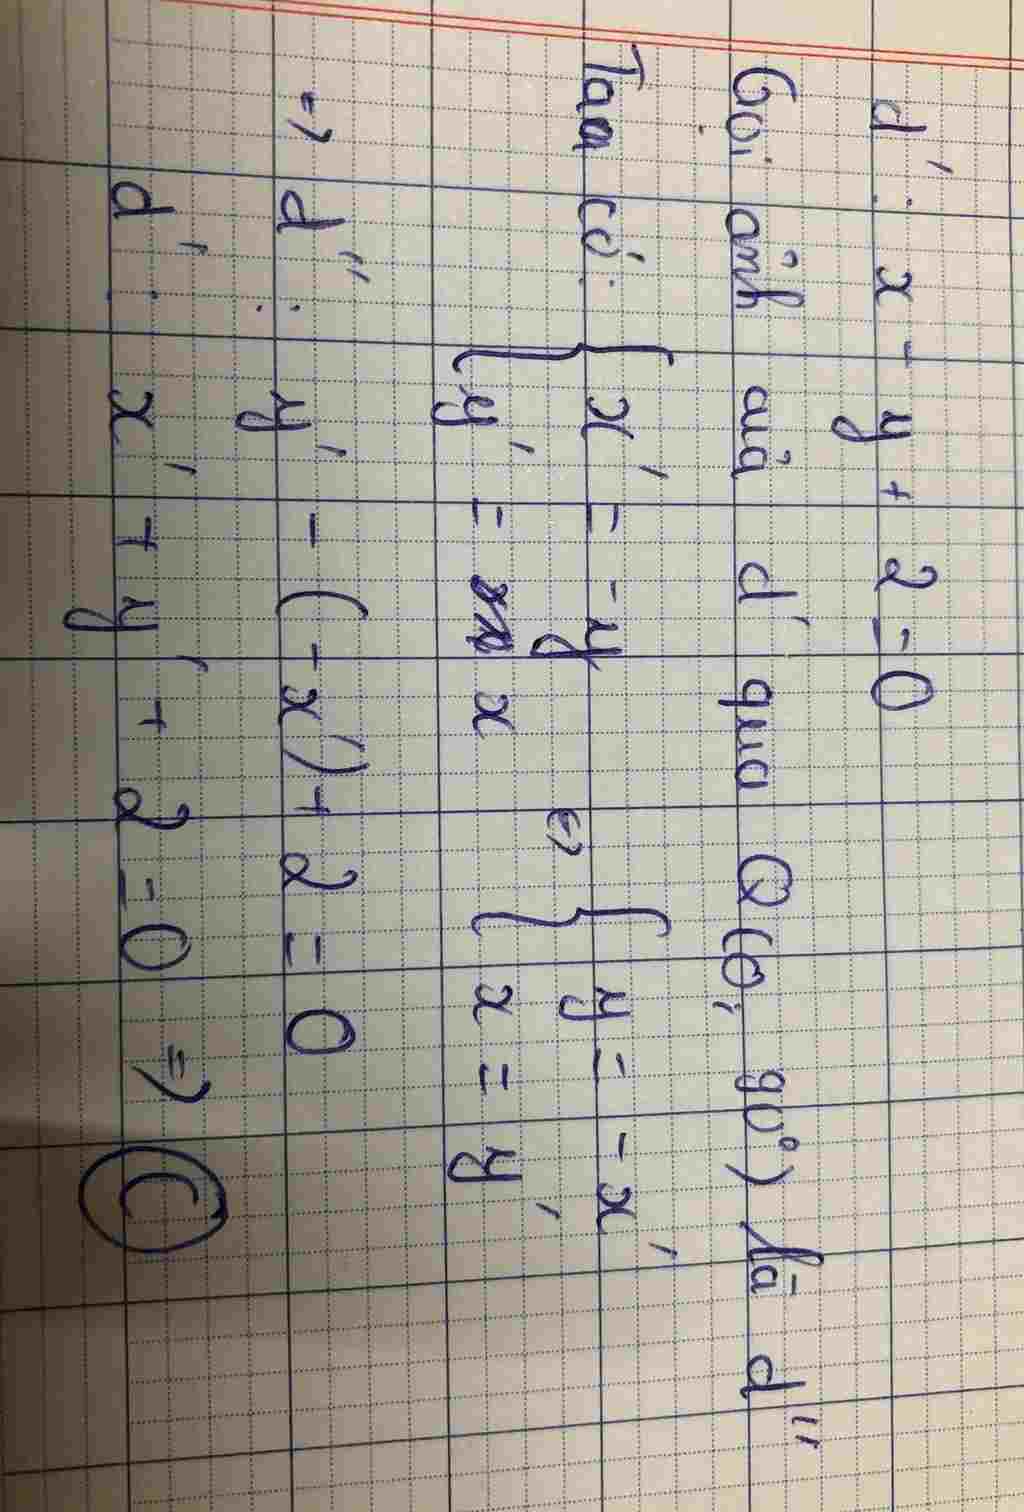 d' : x - y + 2 = 0
Gọi ảnh của d' qua Q(O, 90°) là d''
Ta có: { x' = -y ⇔ { y = -x'
{ y' = x { x = y'
=> d'' : y' - (-x') + 2 = 0
d' : x' + y' + 2 = 0 => C